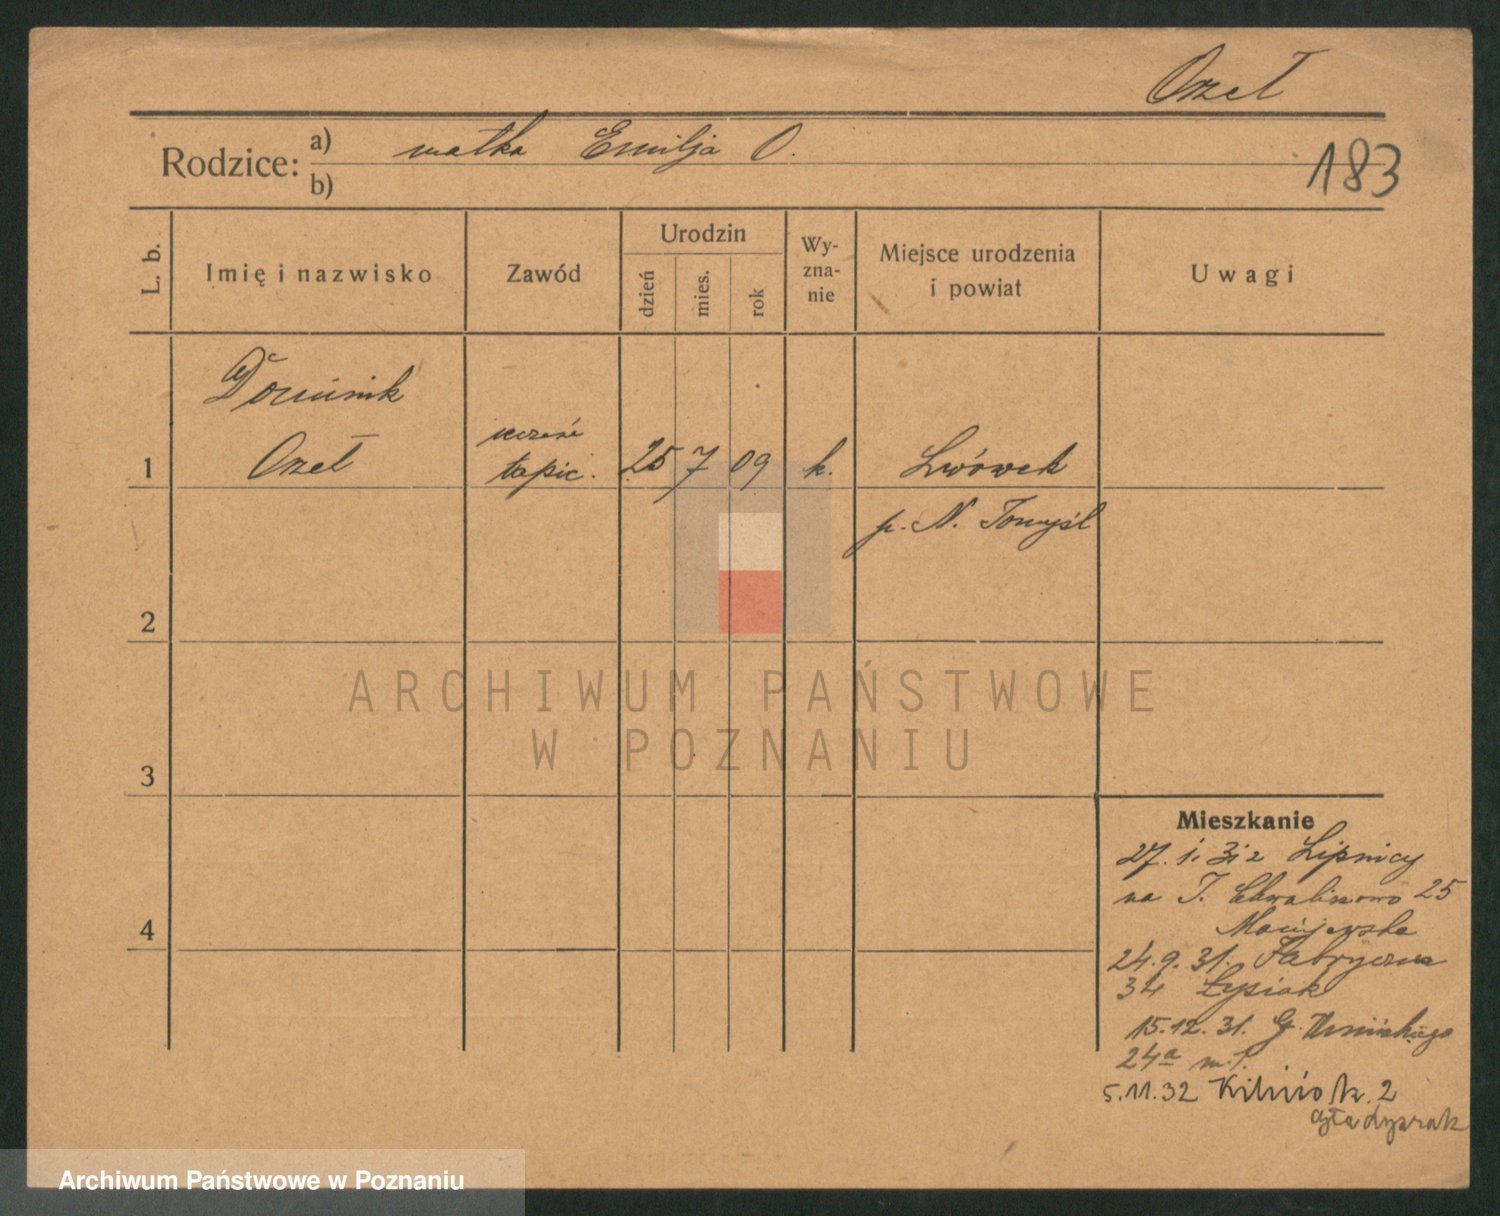 Ozeł
Rodzice: a) matka Emilja O.
b)
183
L. b.
Imię i nazwisko
Zawód
Urodzin
dzień
mies.
rok
Wy-
zna-
nie
Miejsce urodzenia
i powiat
Uwagi
Dominik
1 Ozeł
uczeń
tapic.
25 7 09 k. Lwówek
p. N. Tomyśl
2
3
4
ARCHIWUM PAŃSTWOWE
W POZNANIU
Mieszkanie
27. 1. 31 z Lipnicy
na T. Chwaliszewo 25
Maciejewska
24.9.31. Fabryczna
34 Łysiak
15.12.31. G.
24a m. 1.
5.11.32 2
Archiwum Państwowe w Poznaniu